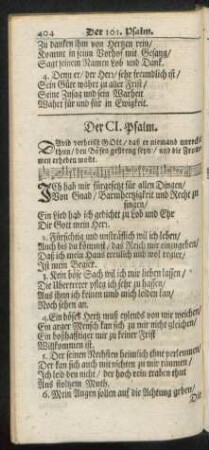 404 Der 101. Psalm.
Zu dancken ihm von Hertzen rein/
Kommt in seinn Vorhof mit Gesang/
Sagt seinem Namen Lob und Danck.
4. Denn er/ der Herr/ sehr freundlich ist/
Sein Güte währt zu aller Frist/
Seine Zusag und sein Warheit
Währt für und für in Ewigkeit.
Der CI. Psalm.
David verheißt GOtt/ daß er niemand unrecht
thun/ den Bösen gestreng seyn/ und die From-
men erheben wolt.
ICh hab mir fürgesetzt für allen Dingen/
Von Gnad/ Barmhertzigkeit und Recht zu
singen/
Ein Lied hab ich gedicht zu Lob und Ehr
Dir Gott mein Herr.
2. Fürsichtig und unsträflich wil ich leben/
Auch bis du kömmst/ das Reich mir einzugeben/
Daß ich mein Haus treulich mit wol regier/
Ist mein Begier.
3. Kein böse Sach wil ich mir lieben lassen/
Die Ubertretter pfleg ich sehr zu hassen/
Aus ihn ich keinen und mich leiden kan/
Noch sehen an.
4. Ein böses Hertz muß eylends von mir weichen/
Ein arger Mensch kan sich zu mir nicht gleichen/
Ein boßhafftiger mir zu keiner Frist
Willkommen ist.
5. Der seinen Nechsten heimlich thut verleumen/
Der kan sich auch mit nichten zu mir räumen/
Ich leid den nicht/ der hoch rein traben thut
Aus stoltzem Muth.
6. Mein Augen sollen auf die Achtung geben/
Die